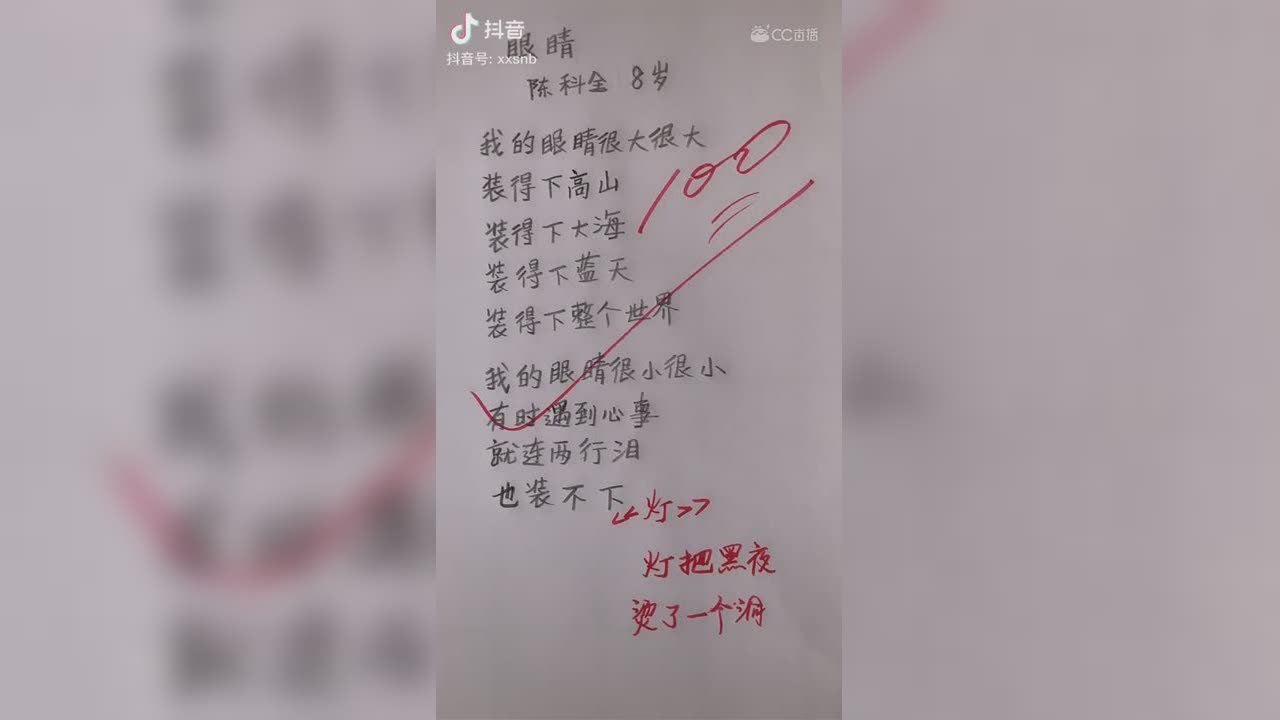 抖音
CC直播
抖音号: xxsnb
眼睛
陈科全 8岁
我的眼睛很大很大
装得下高山
装得下大海
装得下蓝天
装得下整个世界
100
我的眼睛很小很小
有时遇到心事
就连两行泪
也装不下
《灯》
灯把黑夜
烫了一个洞